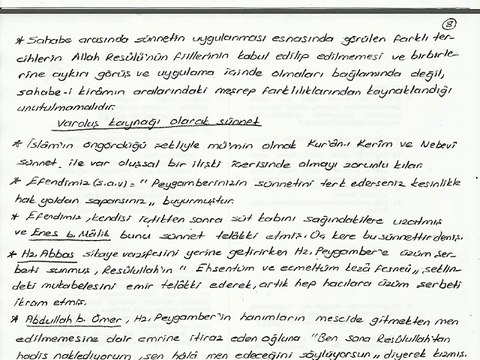 8
* Sahabe arasında sünnetin uygulanması esnasında görülen farklı ter-
cihlerin Allah Resûlü'nün fiillerinin kabul edilip edilmemesi ve birbirle-
rine aykırı görüş ve uygulama içinde olmaları bağlamında değil,
sahabe-i kirâmın aralarındaki meşrep farklılıklarından kaynaklandığı
unutulmamalıdır.
Varoluş kaynağı olarak sünnet
* İslâm'ın öngördüğü şekliyle mü'min olmak Kur'ân-ı Kerîm ve Nebevî
sünnet ile var oluşsal bir ilişki içerisinde olmayı zorunlu kılar.
* Efendimiz (s.a.v) = " Peygamberinizin sünnetini terk ederseniz kesinlikle
hak yoldan saparsınız" buyurmuştur.
* Efendimiz, kendisi içtikten sonra süt kabını sağındakilere uzatmış
ve Enes b. Mâlik bunu sünnet telâkki etmiş. Üç kere bu sünnettir demiş.
* Hz. Abbas sikaye vazifesini yerine getirirken Hz. Peygamber'e üzüm şer-
beti sunmuş, Resûlullah'ın " Ehsentüm ve ecmeltüm kezâ feneû", şeklin-
deki mukabelesini emir telâkki ederek, artık hep hacılara üzüm şerbeti
ikram etmiş.
* Abdullah b. Ömer, Hz. Peygamber'in hanımların mescide gitmekten men
edilmemesine dair emrine itiraz eden oğluna "Ben sana Resûlullah'tan
hadis naklediyorum, sen hâlâ men edeceğini söylüyorsun" diyerek kızmış.